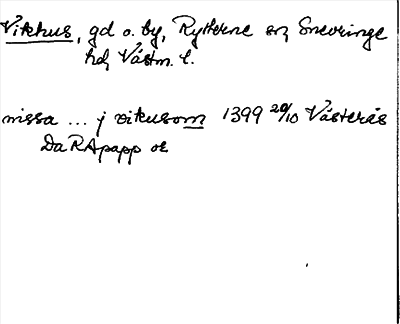 Vikhus, gd o. by, Rytterne sn, Snevringe
hd, Västm. l.
missa ... j vikusom 1399 20/10 Västerås
DaRApapp or